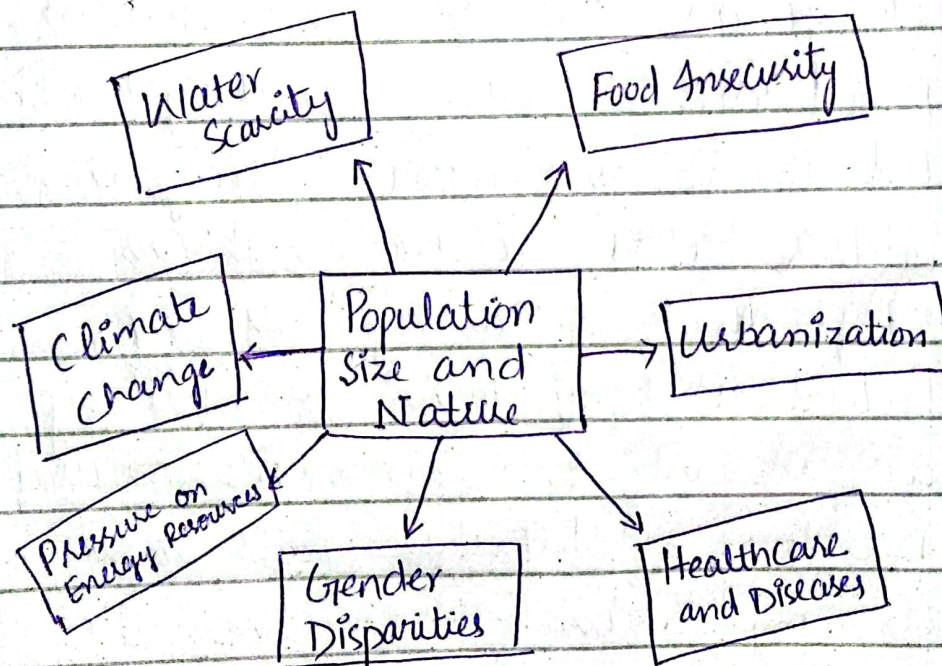 Water
Scarcity
Food Insecurity
Climate
Change
Population
Size and
Nature
Urbanization
Pressure on
Energy Resources
Gender
Disparities
Healthcare
and Diseases